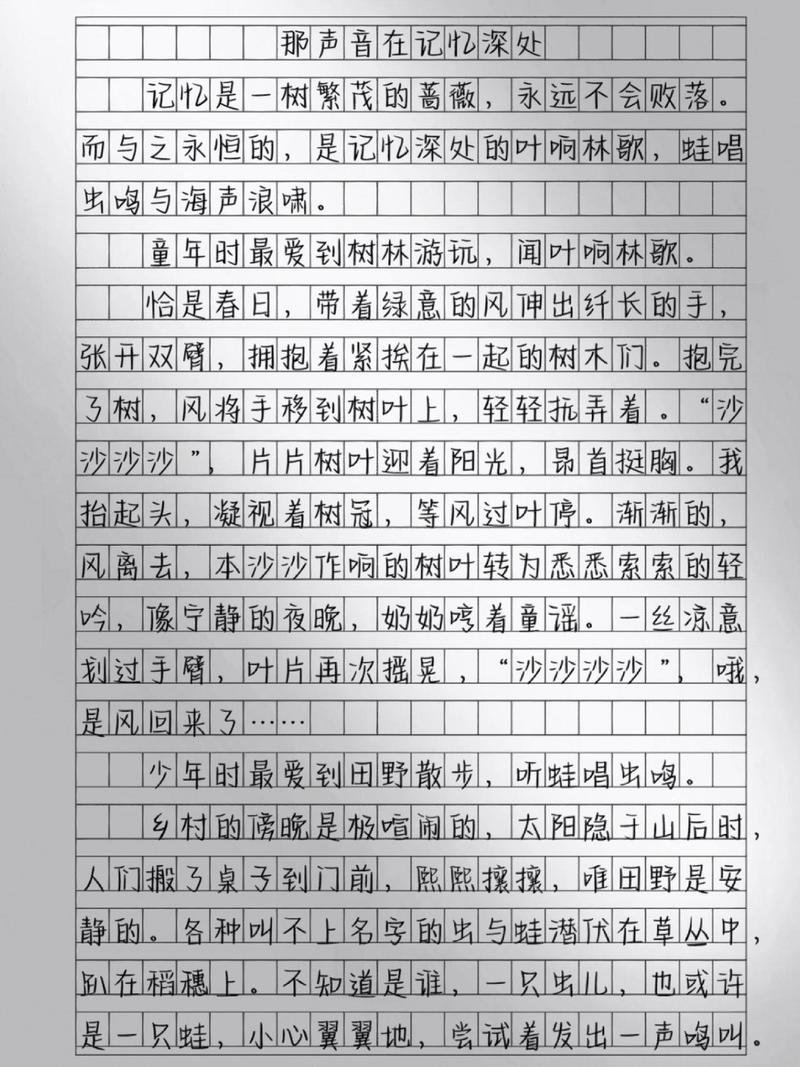 那声音在记忆深处
记忆是一树繁茂的蔷薇，永远不会败落。
而与之永恒的，是记忆深处的叶响林歌，蛙唱
虫鸣与海声浪啸。
童年时最爱到树林游玩，闻叶响林歌。
恰是春日，带着绿意的风伸出纤长的手，
张开双臂，拥抱着紧挨在一起的树木们。抱完
了树，风将手移到树叶上，轻轻抚弄着。“沙
沙沙沙”，片片树叶迎着阳光，昂首挺胸。我
抬起头，凝视着树冠，等风过叶停。渐渐的，
风离去，本沙沙作响的树叶转为悉悉索索的轻
吟，像宁静的夜晚，奶奶哼着童谣。一丝凉意
划过手臂，叶片再次摇晃，“沙沙沙沙”，哦，
是风回来了……
少年时最爱到田野散步，听蛙唱虫鸣。
乡村的傍晚是极喧闹的，太阳隐于山后时，
人们搬了桌子到门前，熙熙攘攘，唯田野是安
静的。各种叫不上名字的虫与蛙潜伏在草丛中，
趴在稻穗上。不知道是谁，一只虫儿，也或许
是一只蛙，小心翼翼地，尝试着发出一声鸣叫。